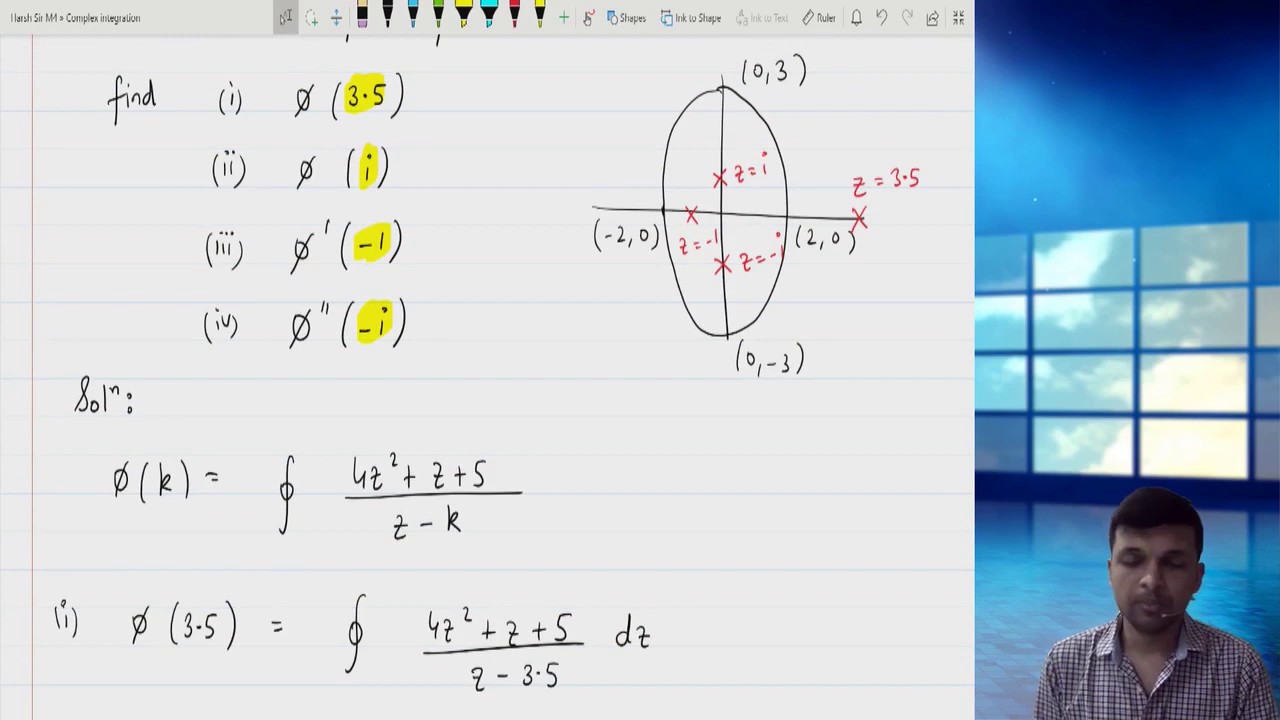 Harsh Sir M4 » Complex integration
Shapes
Ink to Shape
Ink to Text
Ruler
find (i) ø (3.5)
(ii) ø (i)
(iii) ø' (-1)
(iv) ø" (-i)
(0,3)
z=i
z = 3.5
(-2,0)
z=-1
z=-i
(2,0)
(0,-3)
Solⁿ:
ø(k) = ∮ (4z² + z + 5)/(z - k)
(i) ø (3.5) = ∮ (4z² + z + 5)/(z - 3.5) dz